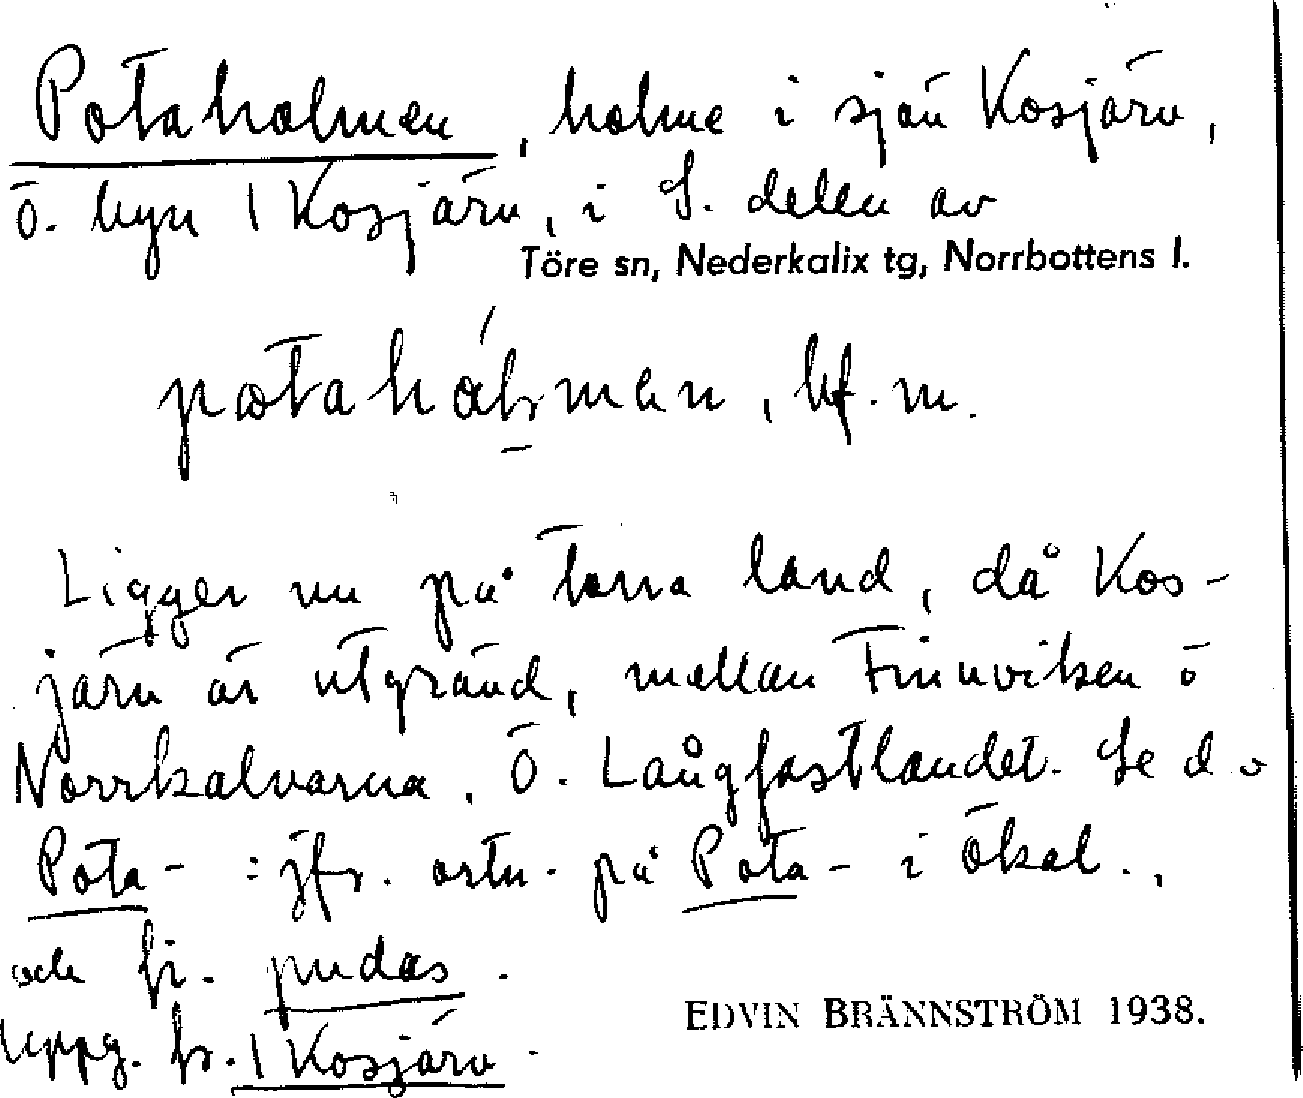 Potaholmen, holme i sjön Kosjärv,
ö. byn 1 Kosjärv, i S. delen av
Töre sn, Nederkalix tg, Norrbottens l.
bf. m.
Ligger nu på torra land, då Kos-
järv är utgrävd, mellan Finnviken ö
Norrkalvarna. Ö. Långfastlandet. Se d o
Pota- : jfr. ortn. på Pota- i Ökal.,
och fi. pudas.
Uppg. fr. 1 Kosjärv.
EDVIN BRÄNNSTRÖM 1938.